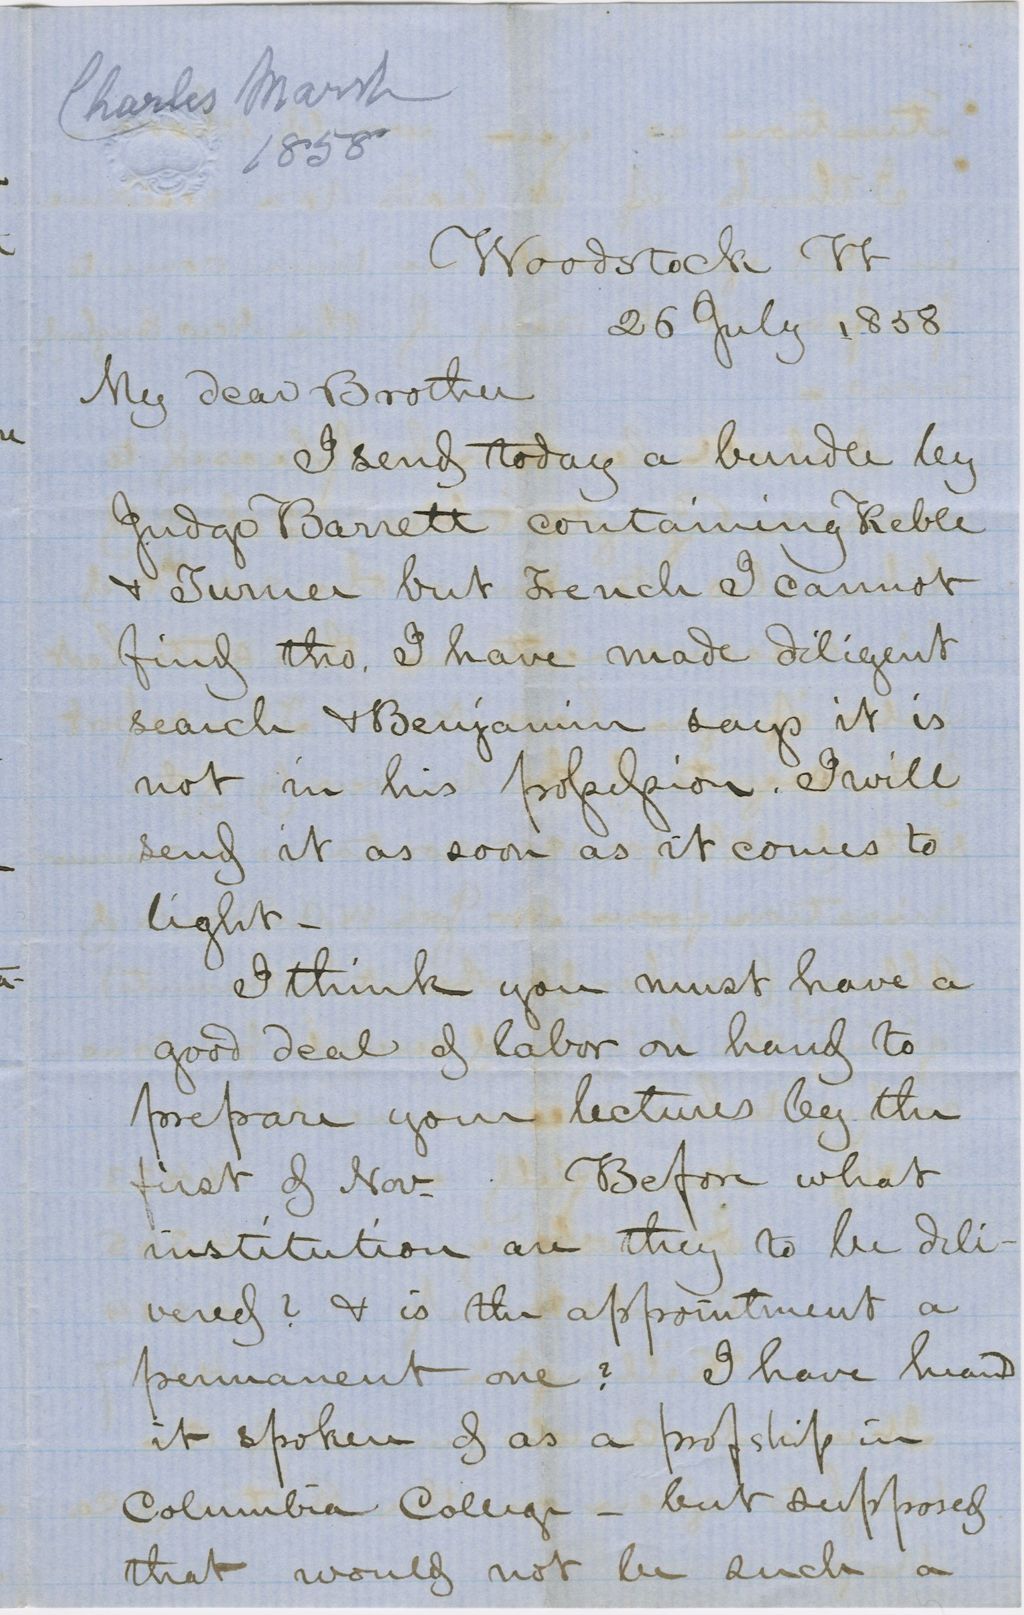 Charles Marsh
1858
Woodstock Vt
26 July 1858
My dear Brother
I send today a bundle by
Judge Barrett containing Keble
& Turner but French I cannot
find tho. I have made diligent
search & Benjamin says it is
not in his possession. I will
send it as soon as it comes to
light -
I think you must have a
good deal of labor on hand to
prepare your lectures by the
first of Nov. Before what
institution are they to be deli-
vered? & is the appointment a
permanent one? I have heard
it spoken of as a profship in
Columbia College - but supposed
that would not be such a